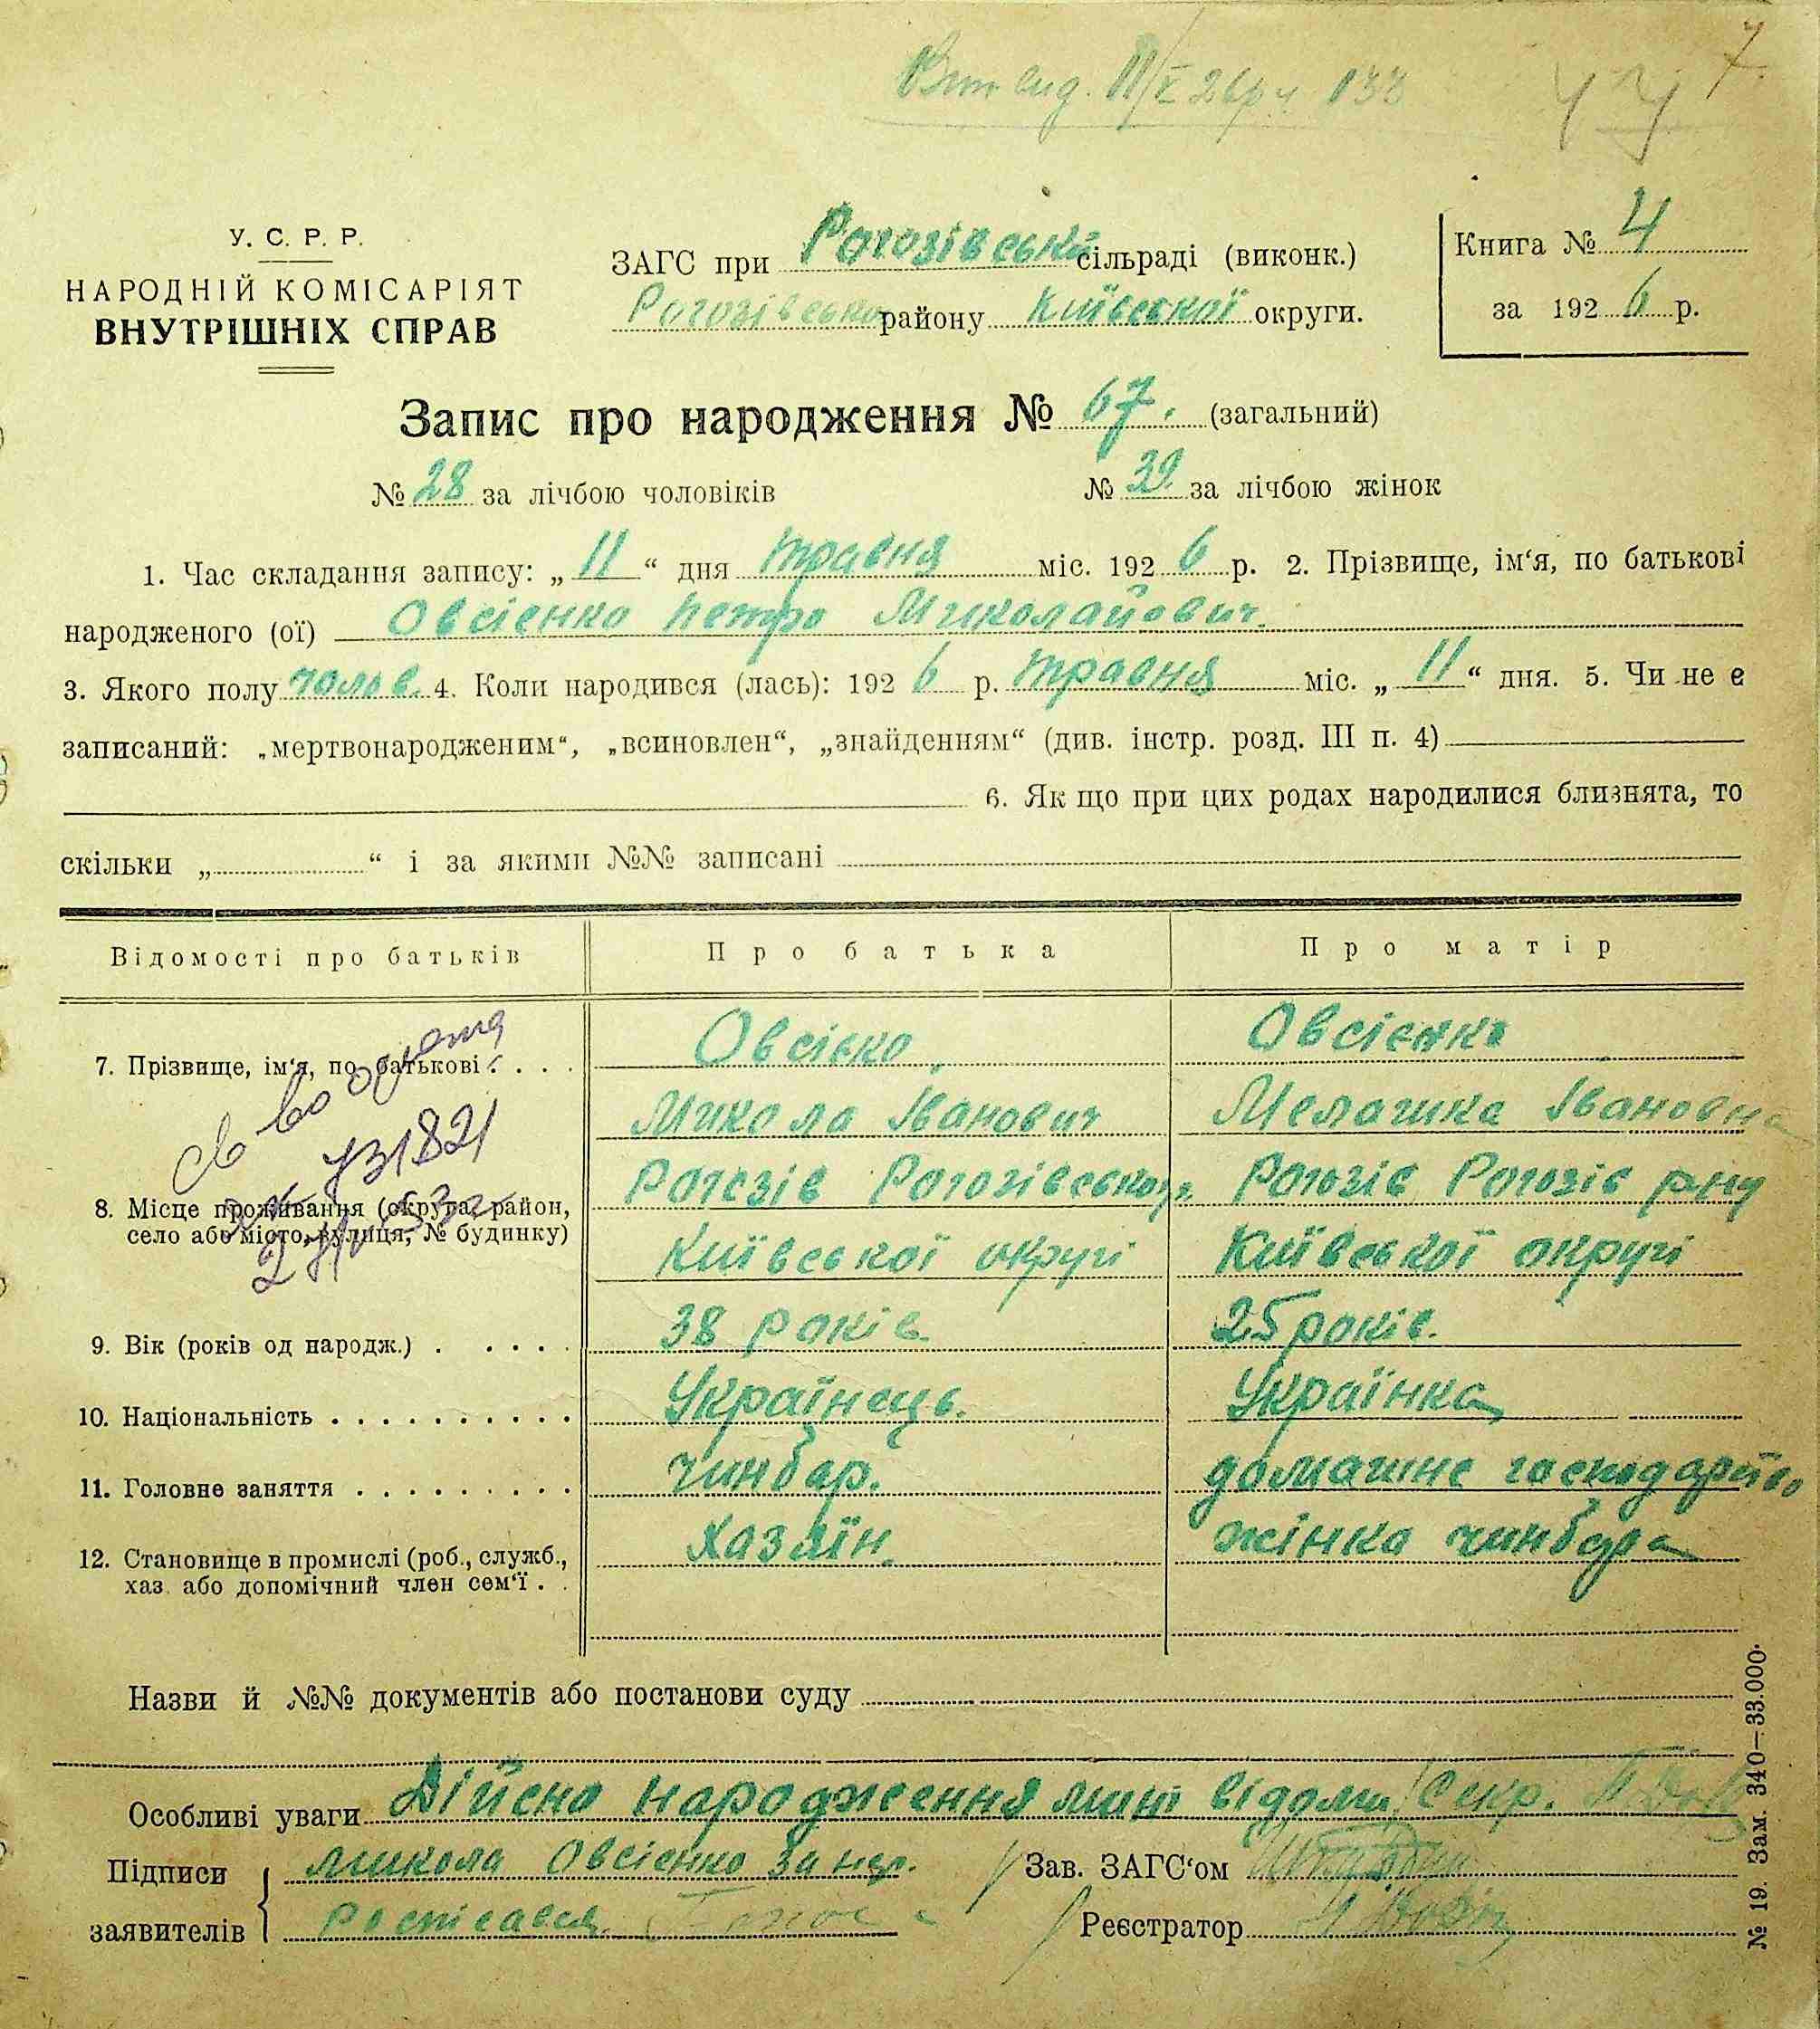 7.
У. С. Р. Р.
НАРОДНІЙ КОМІСАРІЯТ
ВНУТРІШНІХ СПРАВ
ЗАГС при Рогозівській сільраді (виконк.)
Рогозівсько району Київської округи.
Книга № 4
за 192 6 р.
Запис про народження № 67. (загальний)
№ 28 за лічбою чоловіків № 39. за лічбою жінок
1. Час складання запису: „ 11 “ дня травня міс. 192 6 р. 2. Прізвище, ім‘я, по батькові
народженого (ої) Овсієнко Петро Миколайович.
3. Якого полу чолов. 4. Коли народився (лась): 192 6 р. травня міс. „ 11 “ дня. 5. Чи не є
записаний: „мертвонародженим“, „всиновлен“, „знайденням“ (див. інстр. розд. III п. 4)
6. Як що при цих родах народилися близнята, то
скільки „ “ і за якими №№ записані
Відомості про батьків Про батька Про матір
7. Прізвище, ім‘я, по батькові . . . . Овсієко Овсієнко
Микола Іванович Мелашка Івановна
8. Місце проживання (округа, район,
село або місто, вулиця, № будинку)
Рогозів Рогозівського Рогозів Рогозів р-ну
Київської округі Київської округі
9. Вік (років од народж.) . . . . . 38 років. 25 років.
10. Національність . . . . . . . . . . Українець. Українка
11. Головне заняття . . . . . . . . . чинбар. домашнє господарство
12. Становище в промислі (роб., служб.,
хаз. або допомічний член сем‘ї . .
хазяїн. жінка чинбара
Назви й №№ документів або постанови суду
Особливі уваги Дійсно народження мині відоми Секр.
Підписи
заявителів
Микола Овсієнко за нег.
Зав. ЗАГС‘ом
Реєстратор
№ 19. Зам. 340—33.000.